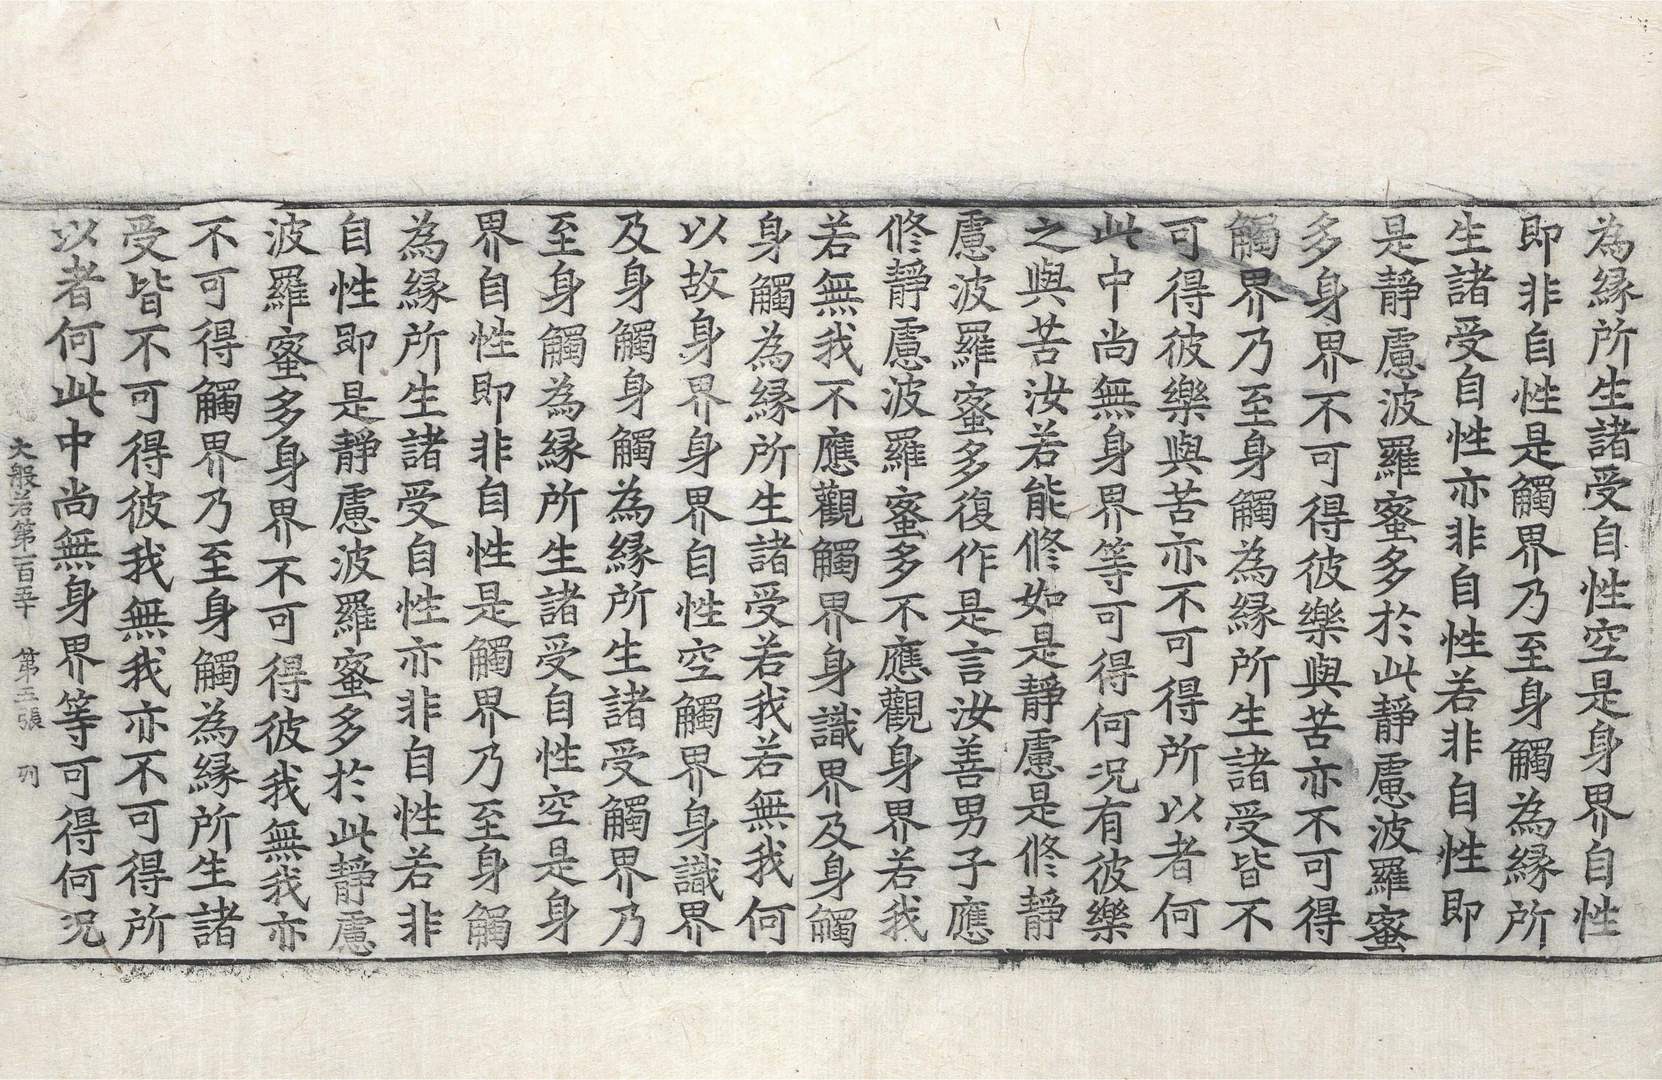 為緣所生諸受自性空是身界自性
即非自性是觸界乃至身觸為緣所
生諸受自性亦非自性若非自性即
是靜慮波羅蜜多於此靜慮波羅蜜
多身界不可得彼樂與苦亦不可得
觸界乃至身觸為緣所生諸受皆不
可得彼樂與苦亦不可得所以者何
此中尚無身界等可得何況有彼樂
之與苦汝若能修如是靜慮是修靜
慮波羅蜜多復作是言汝善男子應
修靜慮波羅蜜多不應觀身界若我
若無我不應觀觸界身識界及身觸
身觸為緣所生諸受若我若無我何
以故身界身界自性空觸界身識界
及身觸身觸為緣所生諸受觸界乃
至身觸為緣所生諸受自性空是身
界自性即非自性是觸界乃至身觸
為緣所生諸受自性亦非自性若非
自性即是靜慮波羅蜜多於此靜慮
波羅蜜多身界不可得彼我無我亦
不可得觸界乃至身觸為緣所生諸
受皆不可得彼我無我亦不可得所
以者何此中尚無身界等可得何況
大般若第一百五十 第五張 列